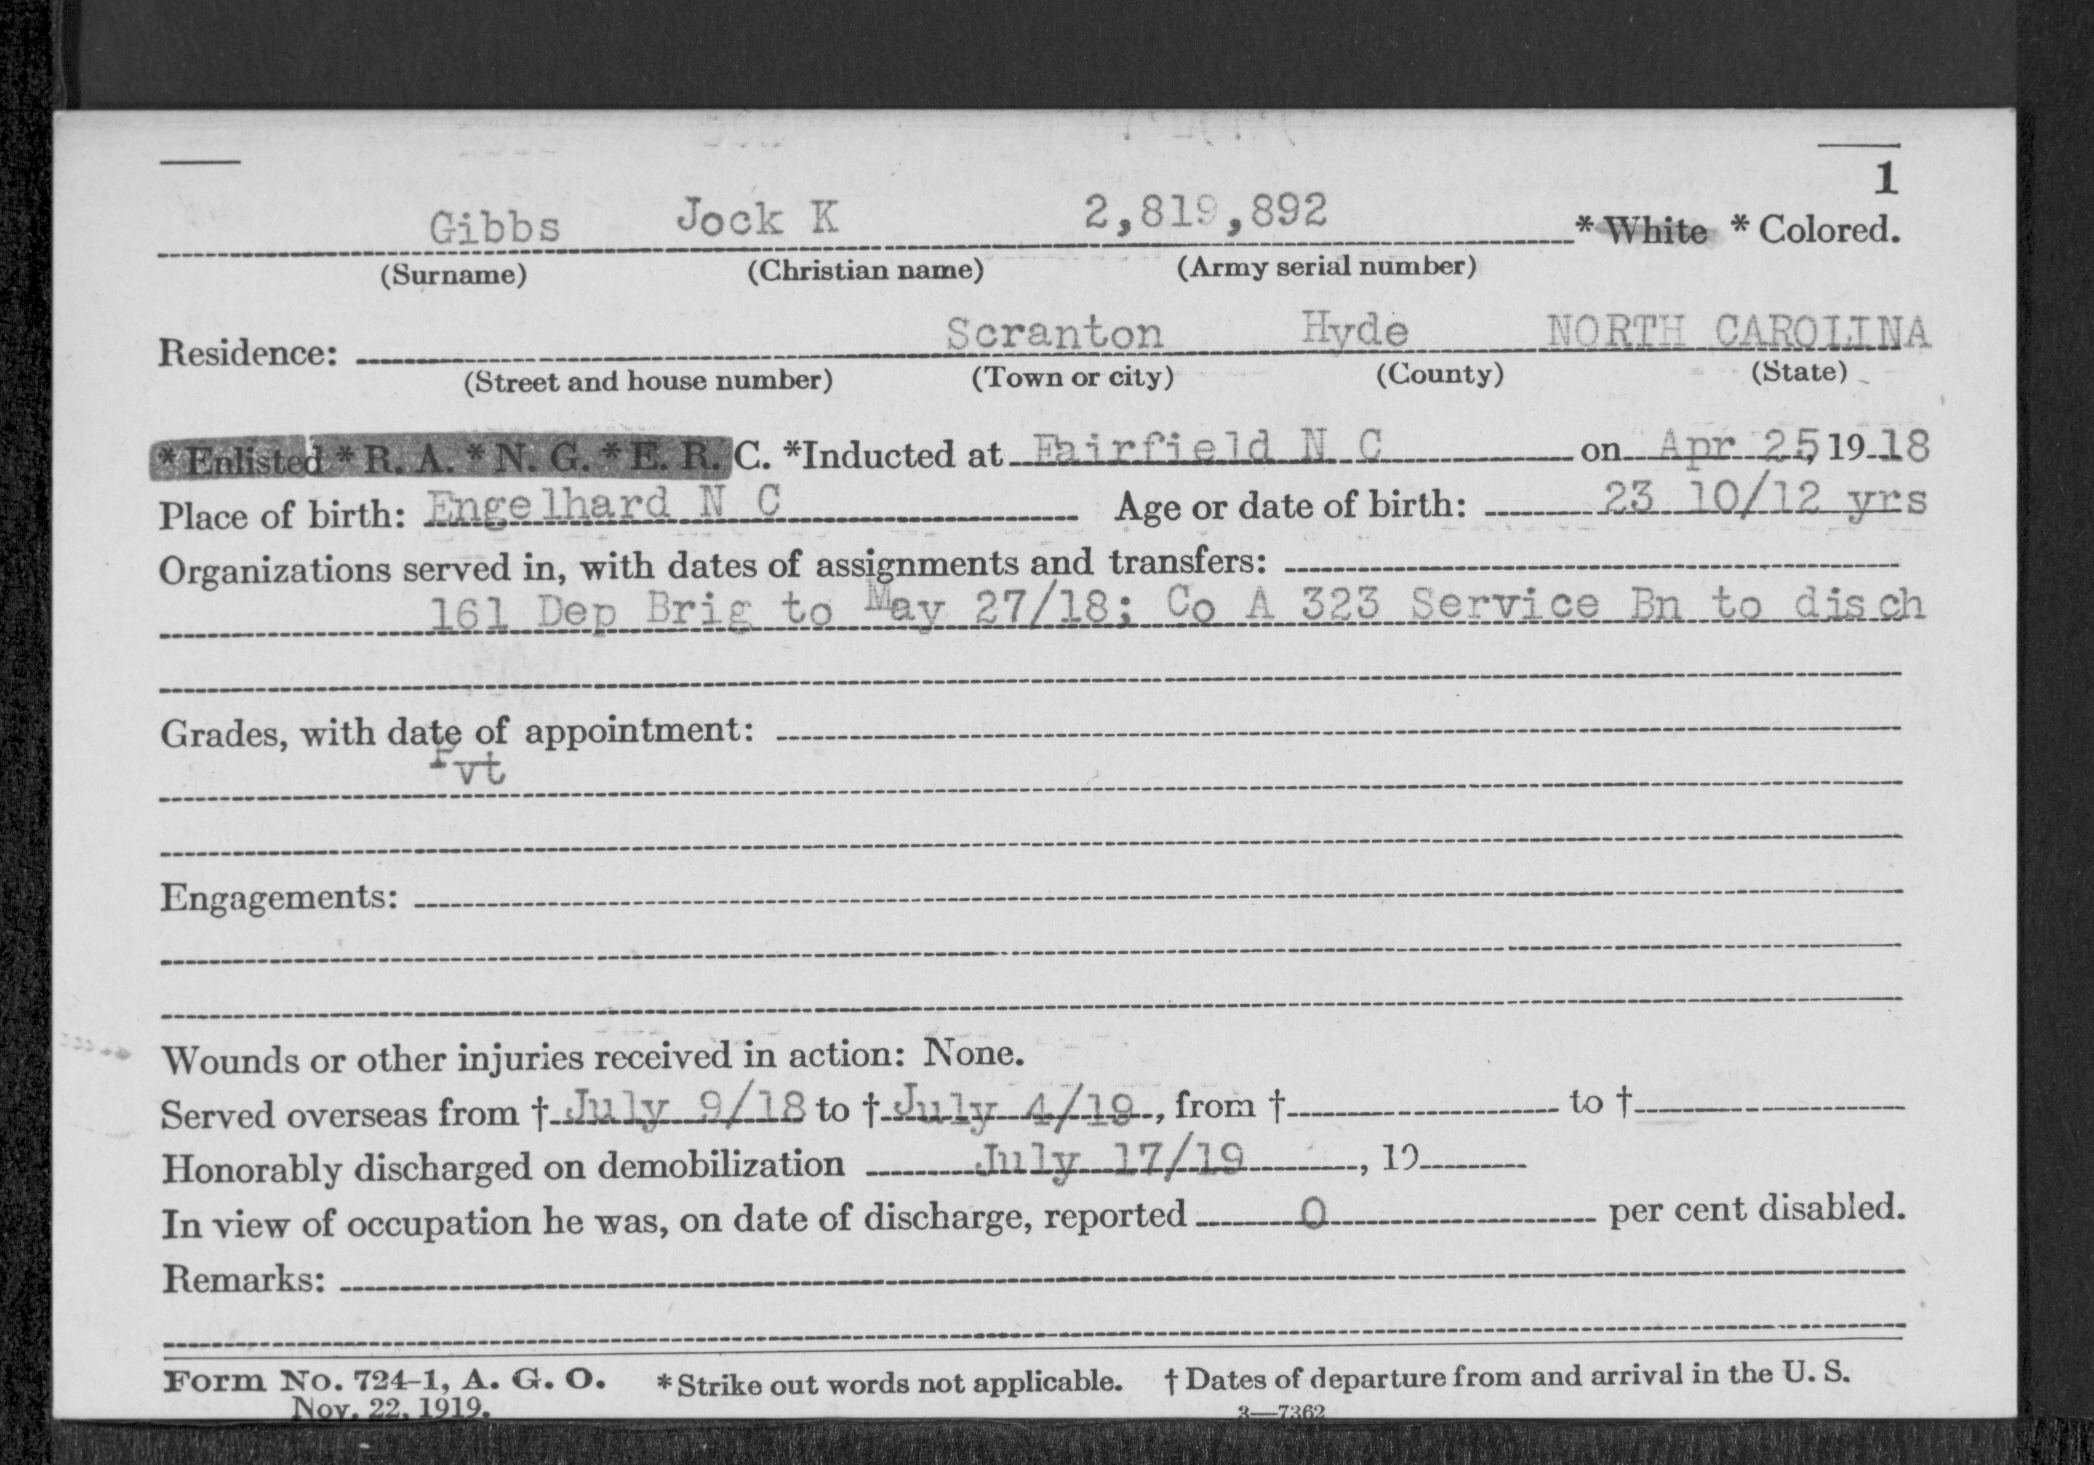 1
Gibbs Jock K 2,819,892 * White * Colored.
(Surname) (Christian name) (Army serial number)
Residence: Scranton Hyde NORTH CAROLINA
(Street and house number) (Town or city) (County) (State)
* Enlisted * R. A. * N. G. * E. R. C. *Inducted at Fairfield N C on Apr 25, 1918
Place of birth: Engelhard N C Age or date of birth: 23 10/12 yrs
Organizations served in, with dates of assignments and transfers:
161 Dep Brig to May 27/18; Co A 323 Service Bn to disch
Grades, with date of appointment:
Pvt
Engagements:
Wounds or other injuries received in action: None.
Served overseas from † July 9/18 to † July 4/19, from † to †
Honorably discharged on demobilization July 17/19, 19
In view of occupation he was, on date of discharge, reported 0 per cent disabled.
Remarks:
Form No. 724-1, A. G. O. * Strike out words not applicable. † Dates of departure from and arrival in the U. S.
Nov. 22, 1919. 3—7362